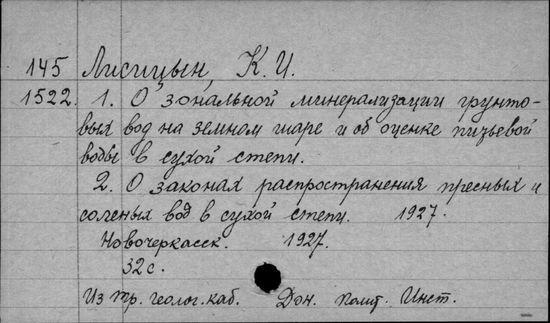 145 Лисицын, К. И.
1522. 1. О зональной минерализации грунто-
вых вод на земном шаре и об оценке питьевой
воды в сухой степи.
2. О законах распространения пресных и
соленых вод в сухой степи. 1927.
Новочеркасск. 1927.
32 с.
Из тр. геолог. каб. Дон. полит. Инст.